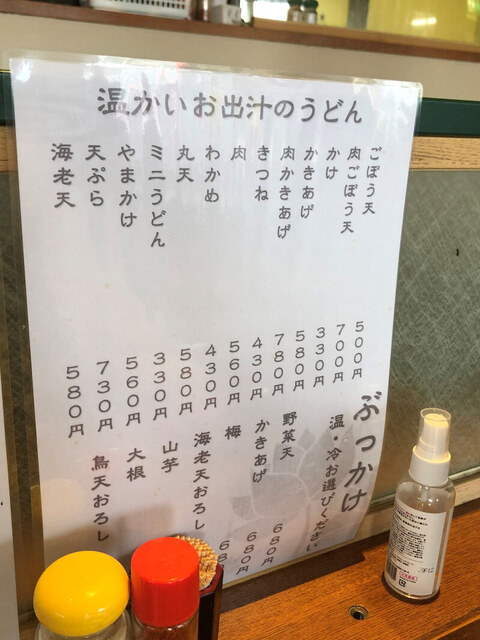 温かいお出汁のうどん
ごぼう天 500円
肉ごぼう天 700円
かけ 330円
かきあげ 580円
肉かきあげ 780円
きつね 430円
肉 560円
わかめ 430円
丸天 580円
ミニうどん 330円
やまかけ 560円
天ぷら 730円
海老天 580円
ぶっかけ
温・冷お選びください
野菜天 680円
かきあげ 680円
梅 68
海老天おろし
山芋
大根
鳥天おろし